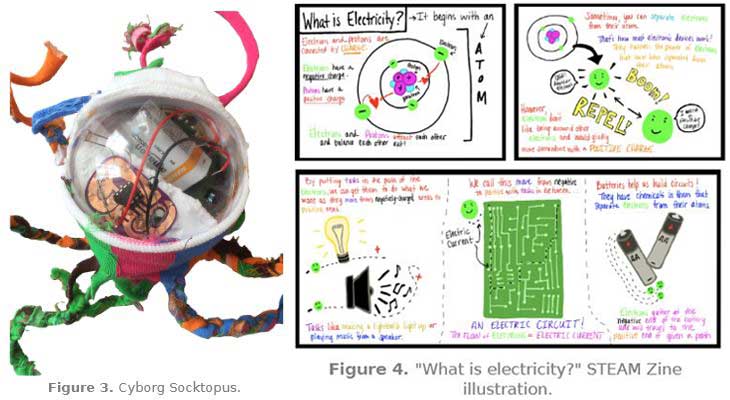 What is Electricity? → It begins with an
ATOM
Electrons and protons are
connected by CHARGE.
Electrons have a
negative charge.
Protons have a
positive charge
Electron
Proton
Electrons and Protons attract each other
and balance each other out!
Sometimes, you can separate electrons
from their atoms.
That's how most electronic devices work!
They harness the power of electrons
that have been separated from
their atoms.
BOOM!
REPEL!
However,
electrons don't
like being around other
electrons and would gladly
move somewhere with a POSITIVE CHARGE.
By putting tasks in the path of the
electrons, we can get them to do what we
want as they move from negatively-charged areas to
positive ones.
Tasks like making a lightbulb light up or
playing music from a speaker.
We call this move from negative
to positive with tasks in between..
Electric
Current
AN ELECTRIC CIRCUIT!
The FLOW of ELECTRONS = ELECTRIC CURRENT
Batteries help us build circuits!
They have chemicals in them that
separate electrons from their atoms.
AA
AA
Electrons gather at the
negative end of the battery
and will travel to the
positive end if given a path.
Figure 3. Cyborg Socktopus.
Figure 4. "What is electricity?" STEAM Zine
illustration.